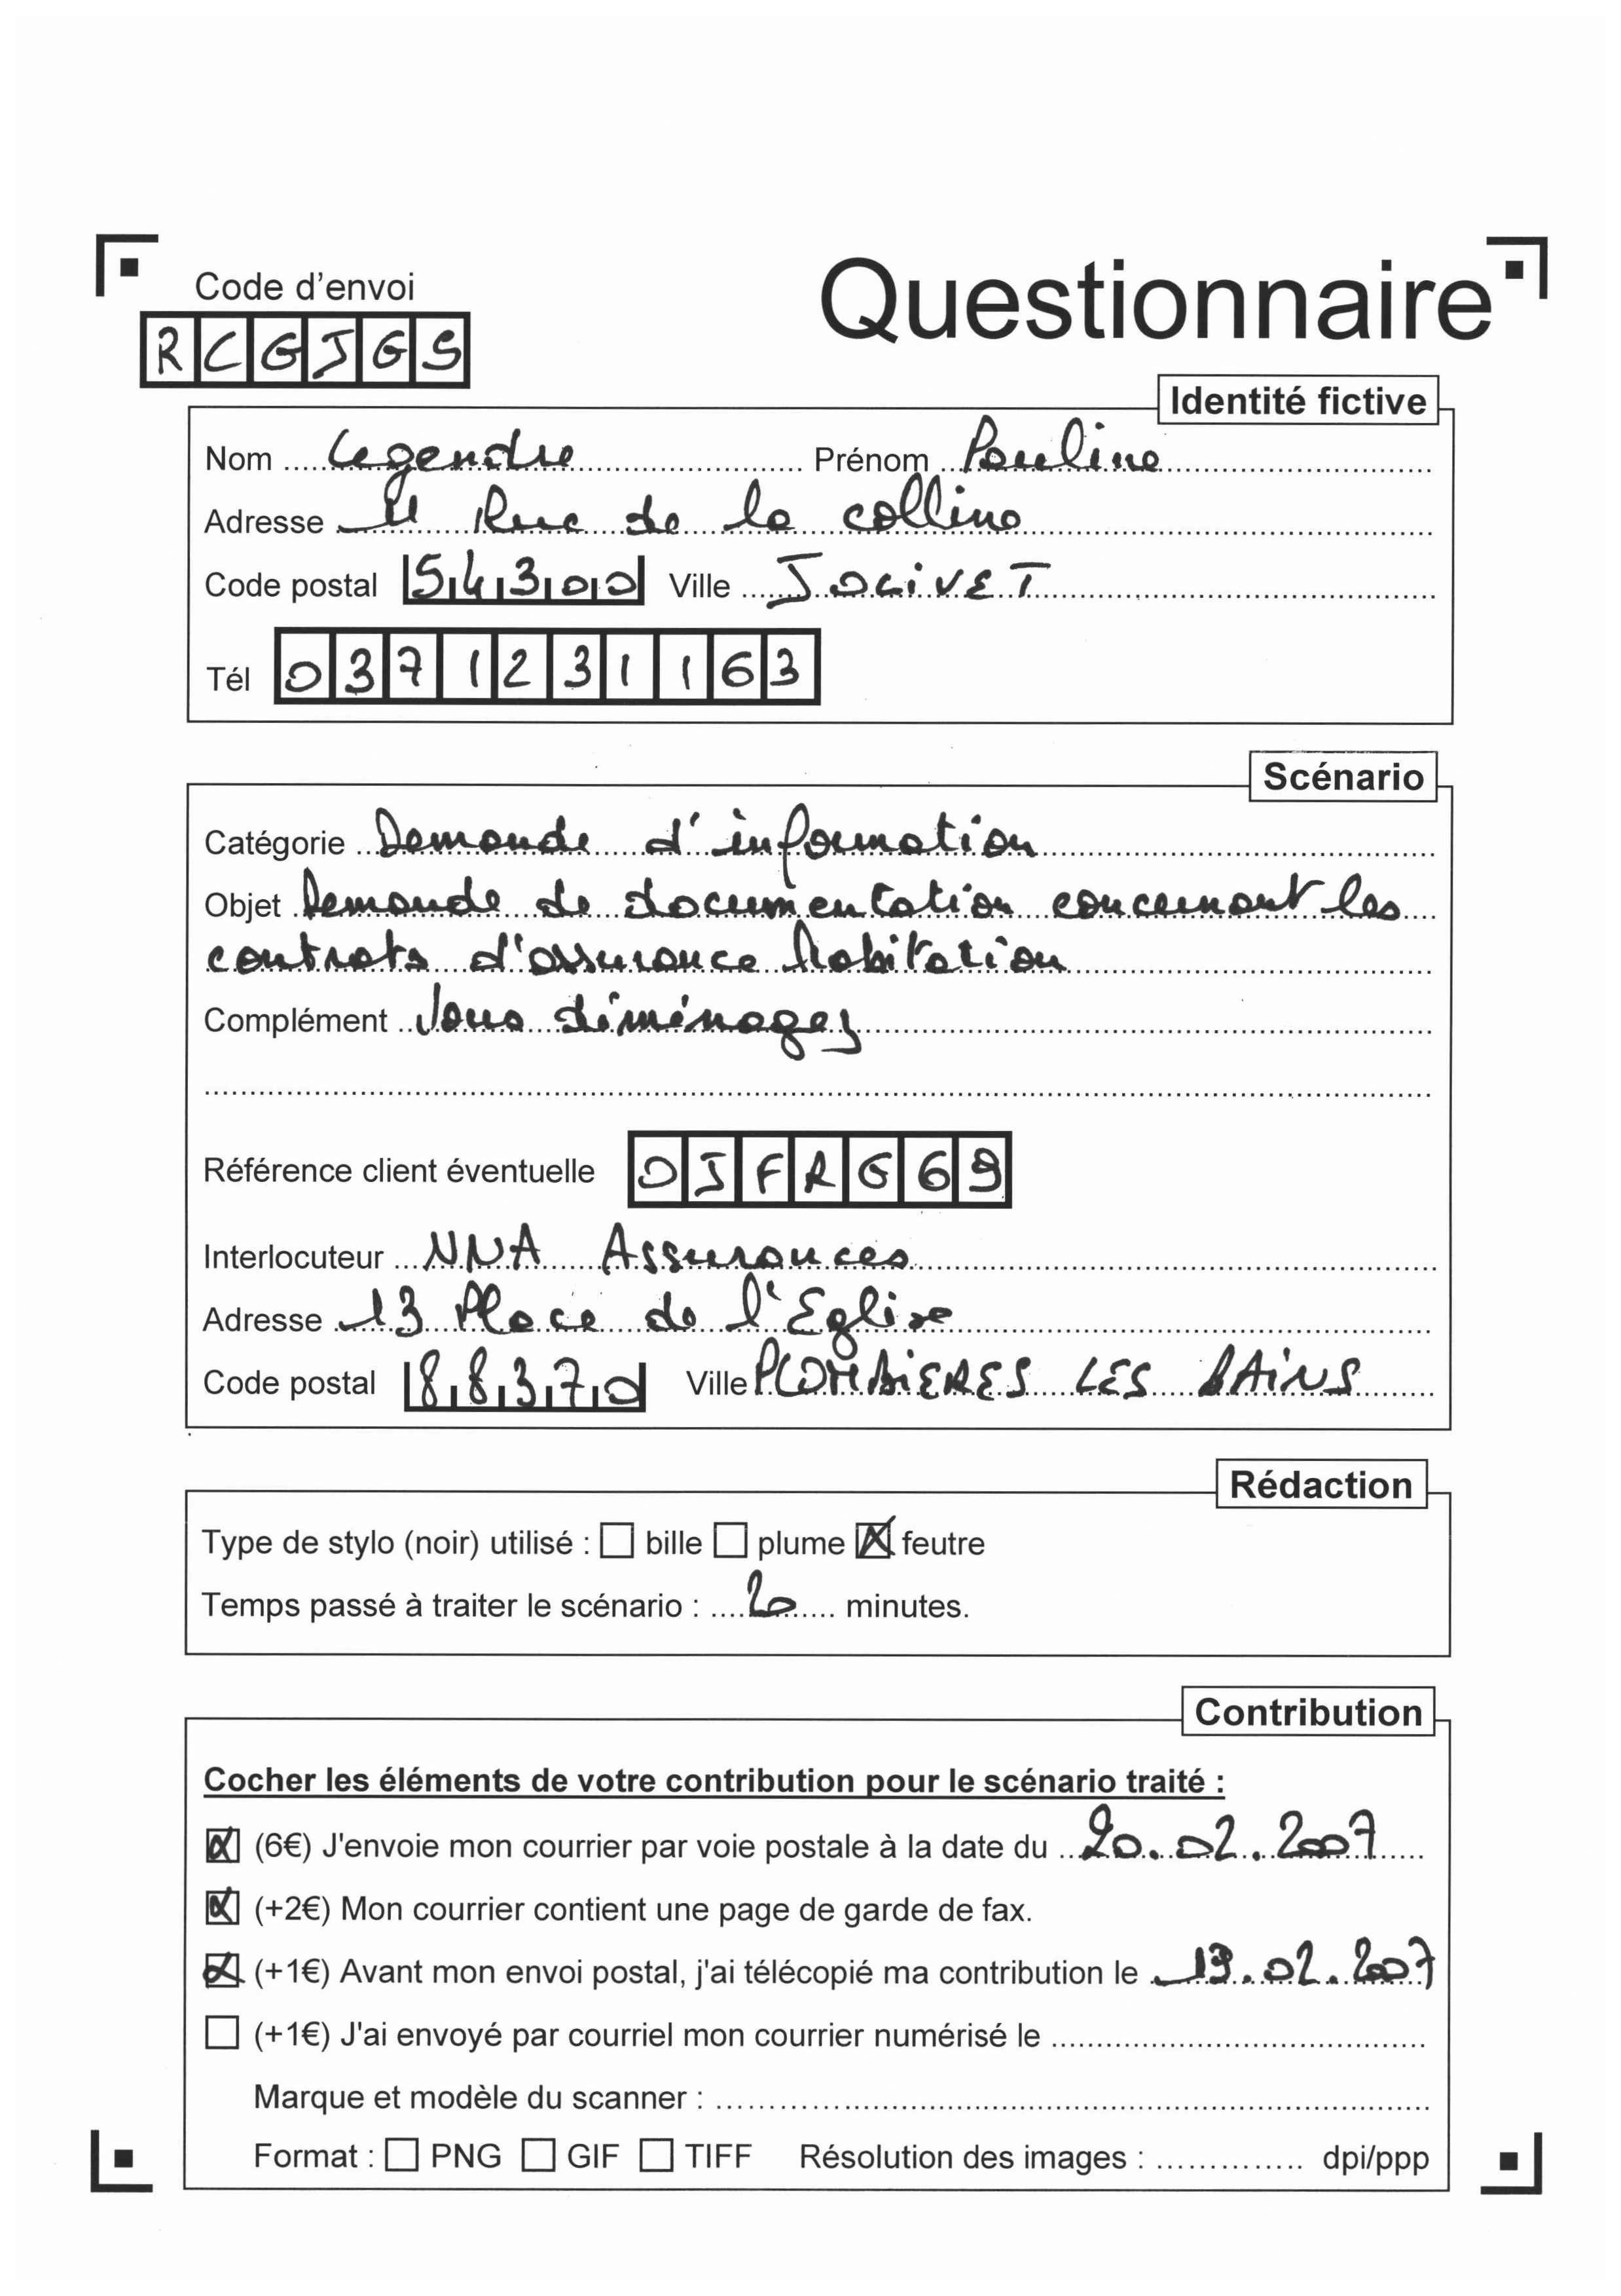 Code d'envoi
Questionnaire
RCGJGS
Identité fictive
Nom Legendre Prénom Pauline
Adresse Rue de la colline
Code postal 54300 Ville JOLIVET
Tél 0371231163
Scénario
Catégorie Demande d'information
Objet Demande de documentation concernant les
contrats d'assurance habitation
Complément Vous déménagez
Référence client éventuelle OJFRG69
Interlocuteur NNA Assurances
Adresse 13 Place de l'Eglise
Code postal 88370 Ville PLOMBIERES LES BAINS
Rédaction
Type de stylo (noir) utilisé : bille plume feutre
Temps passé à traiter le scénario : 20 minutes.
Contribution
Cocher les éléments de votre contribution pour le scénario traité :
(6€) J'envoie mon courrier par voie postale à la date du 20.02.2007
(+2€) Mon courrier contient une page de garde de fax.
(+1€) Avant mon envoi postal, j'ai télécopié ma contribution le 19.02.2007
(+1€) J'ai envoyé par courriel mon courrier numérisé le
Marque et modèle du scanner :
Format : PNG GIF TIFF Résolution des images : dpi/ppp